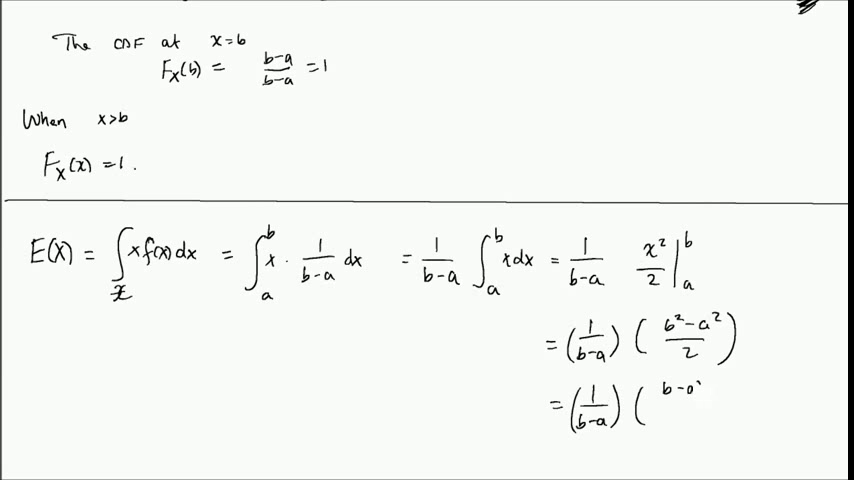 The CDF at x=b
F_X(b) = \frac{b-a}{b-a} = 1
When x>b
F_X(x) = 1.
E(X) = \int_x x f(x) dx = \int_a^b x \cdot \frac{1}{b-a} dx = \frac{1}{b-a} \int_a^b x dx = \frac{1}{b-a} \frac{x^2}{2} |_a^b
= (\frac{1}{b-a}) ( \frac{b^2-a^2}{2} )
= (\frac{1}{b-a}) ( b-